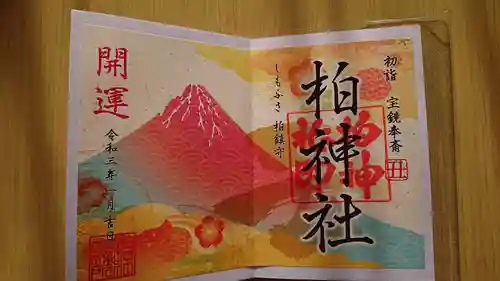 初詣 宝鏡奉斎
柏神社
しもふさ 柏鎮守
開運
令和三年一月吉日